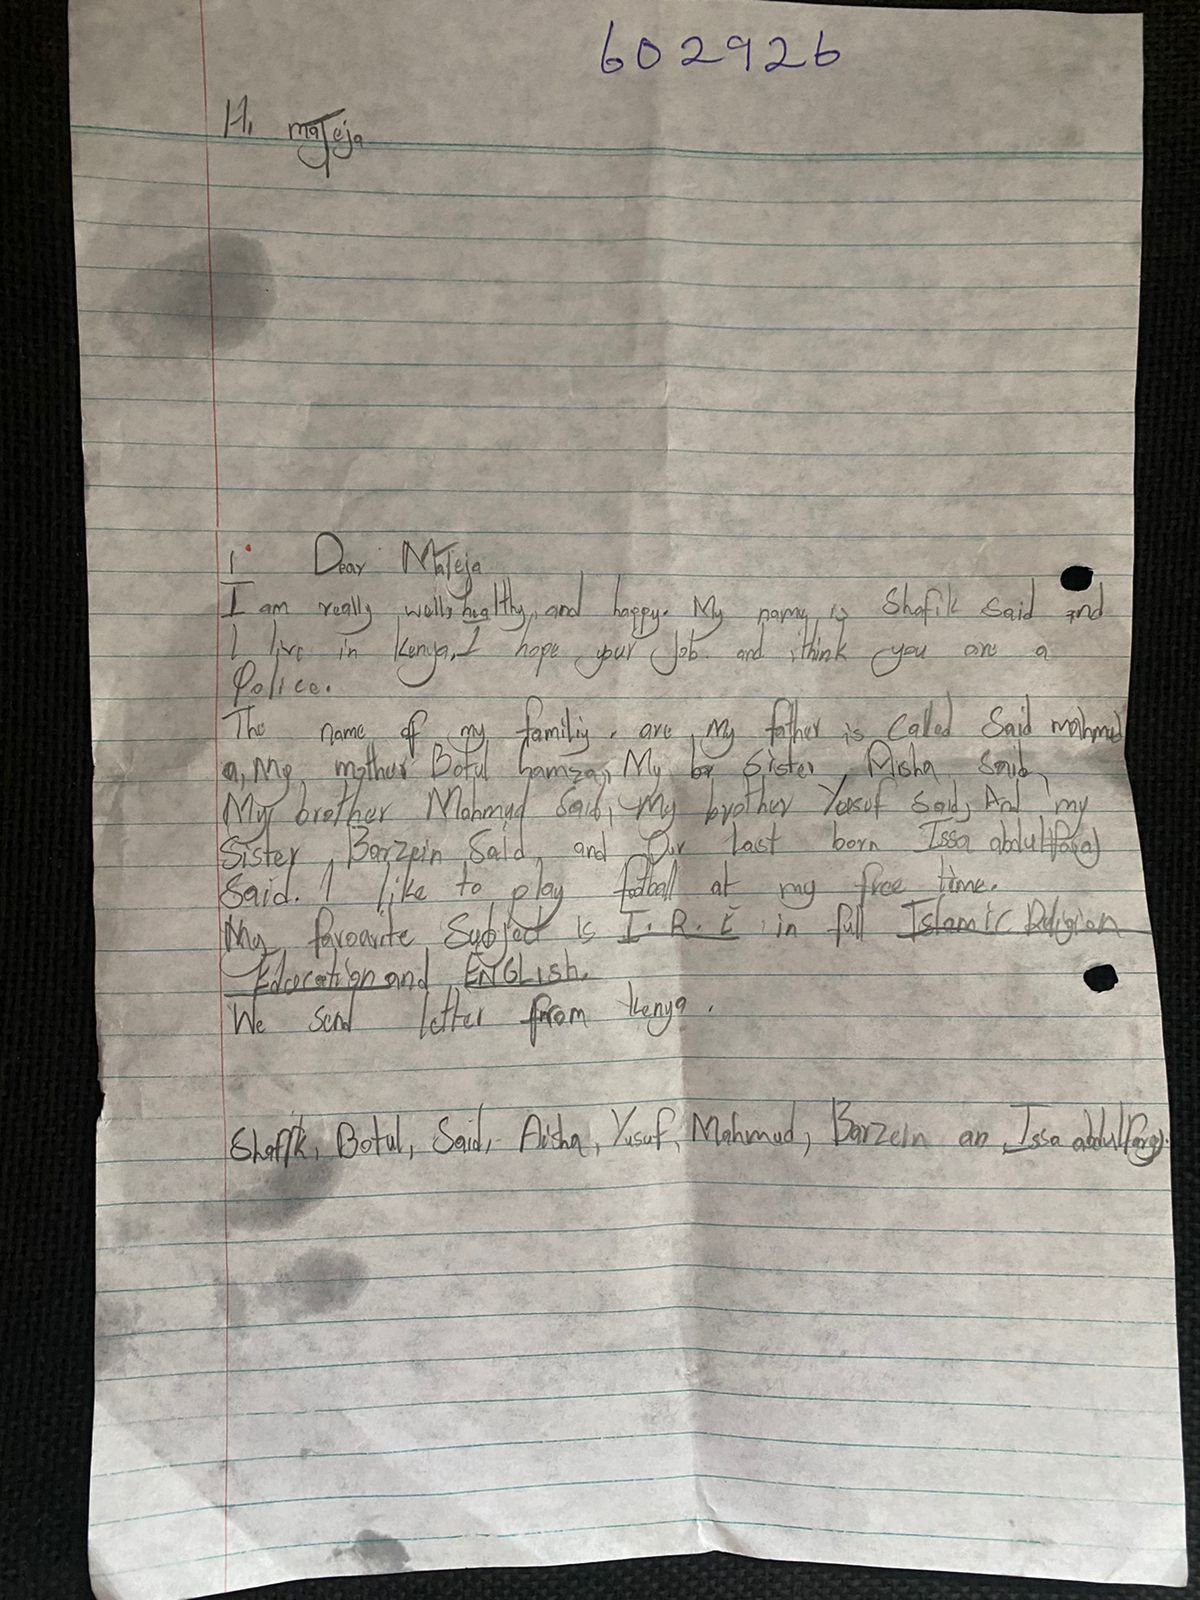 602926
Hi mateja
1 Dear Mateja
I am really well, healthy, and happy. My name is Shafik Said and
I live in Kenya, I hope your Job. and ithink you are a
Police.
The name of my familiy. are My father is called Said mahmud
a, My mother Botul hamza, My br Sister, Aisha Said,
My brother Mahmud Said, My brother Yusuf Said, And my
Sister, Barzein Said, and Our last born Issa abdul(faraj)
Said. I like to play football at my free time.
My favourite Subject is I.R.E in full Islamic Religion
Education and ENGLish.
We send letter from Kenya.
Shafik, Botul, Said, Aisha, Yusuf, Mahmud, Barzein an Issa abdul(faraj).